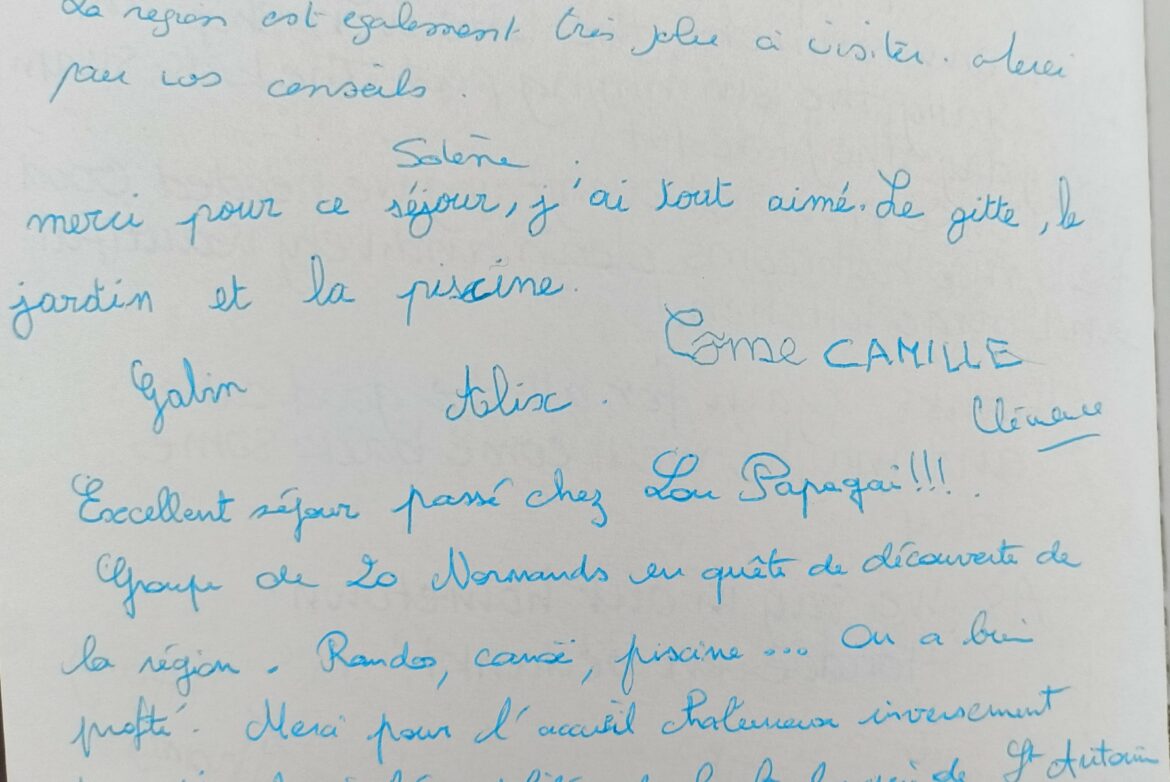 La region est également très jolie à visiter. Merci
pour vos conseils.
Solène
merci pour ce séjour, j'ai tout aimé. Le gitte, le
jardin et la piscine.
Côme CAMILLE
Gabin Alix.
Clémence
Excellent séjour passé chez Lou Papagai!!!.
Groupe de 20 Normands en quête de découverte de
la région. Randos, canoë, piscine... On a bien
profité. Merci pour l'accueil chaleureux inversement
de St Antonin